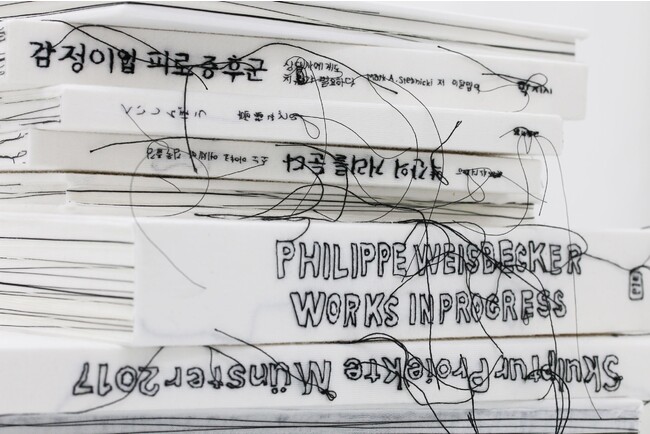 감정이입 피로증후군
상담사에게도
치유가 필요하다 Mark A. Stebnicki 저
학지사
약간의 거리를 둔다
소노 아야코 에세이
PHILIPPE WEISBECKER
WORKS IN PROGRESS
Skulptur Projekte Münster 2017